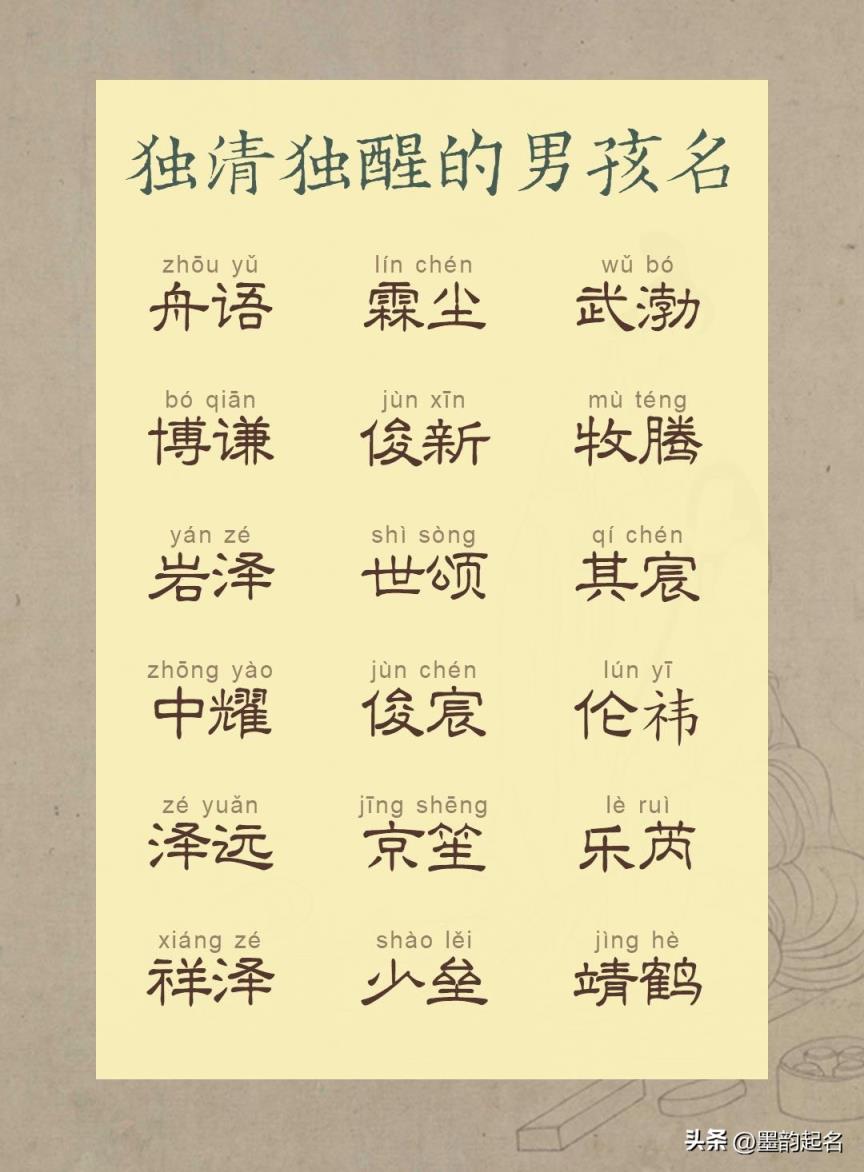 独清独醒的男孩名
zhōu yǔ lín chén wǔ bó
舟语 霖尘 武渤
bó qiān jùn xīn mù téng
博谦 俊新 牧腾
yán zé shì sòng qí chén
岩泽 世颂 其宸
zhōng yào jùn chén lún yī
中耀 俊宸 伦祎
zé yuǎn jīng shēng lè ruì
泽远 京笙 乐芮
xiáng zé shào lěi jìng hè
祥泽 少垒 靖鹤
头条 @墨韵起名